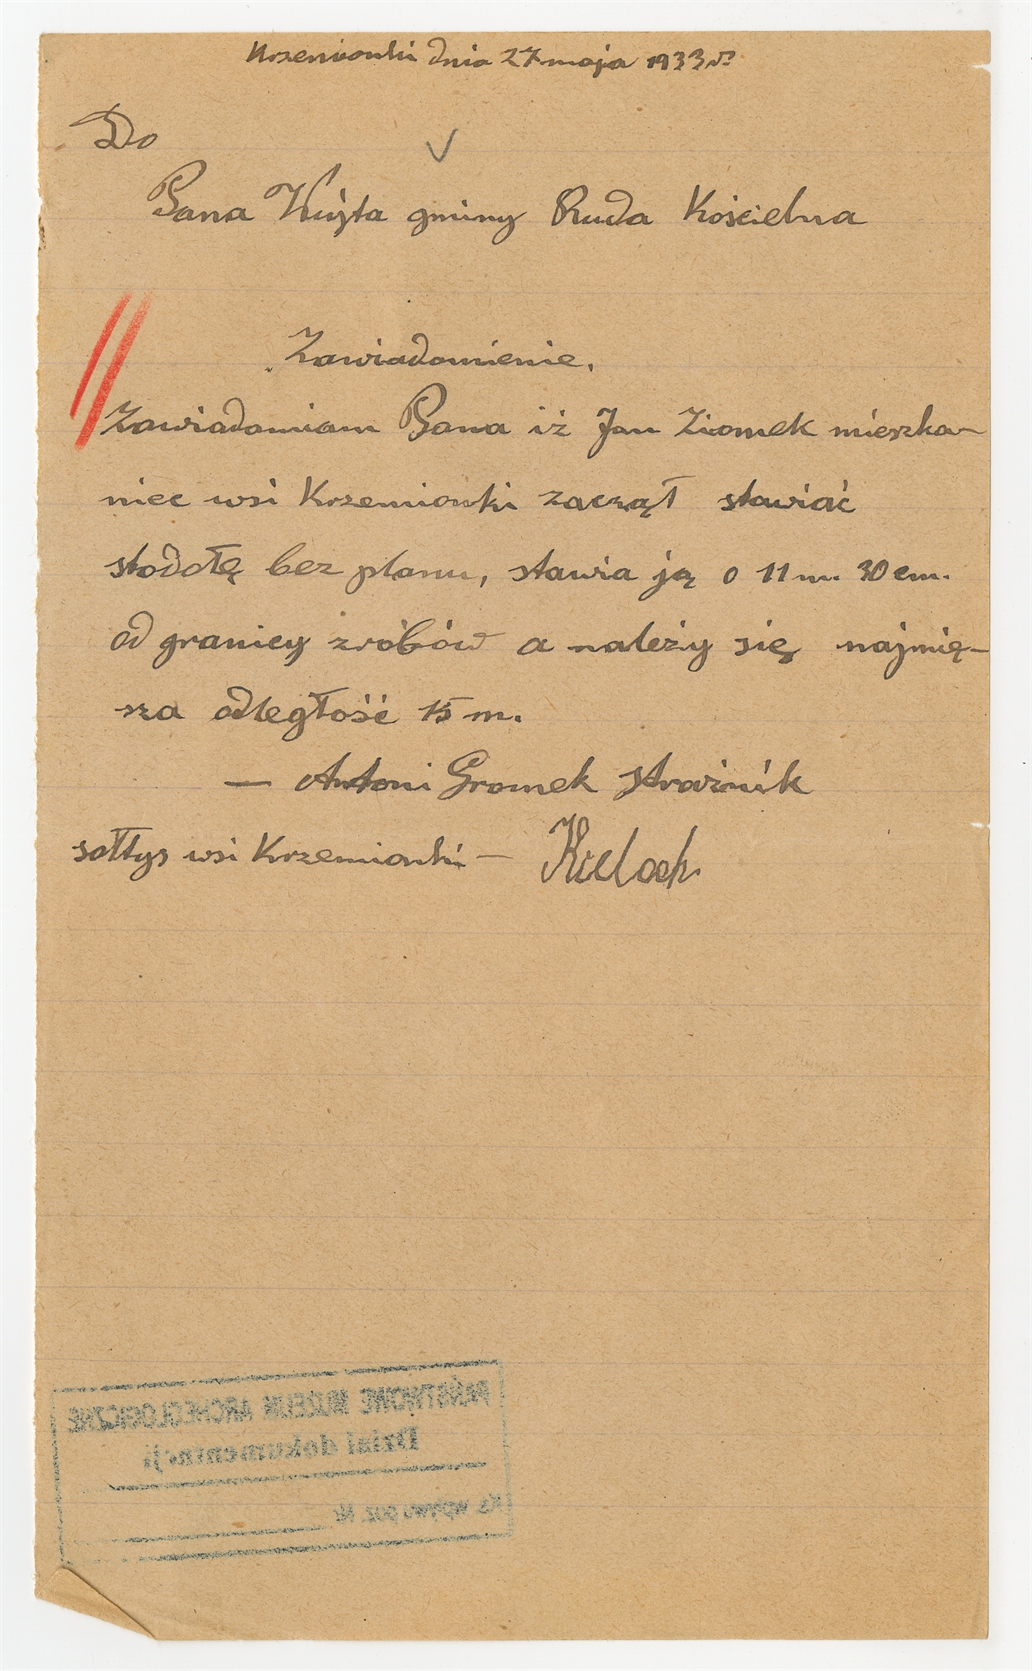 Krzemionki dnia 27 maja 1933 r.
Do
Pana Wujta gminy Ruda Kościelna
Zawiadomienie.
Zawiadamiam Pana iż Jan Ziomek mieszka-
niec wsi Krzemionki zaczął stawiać
stodołę bez planu, stawia ją o 11 m. 30 cm.
od granicy zróbów a należy się najmię-
sza odległość 15 m.
— Antoni Gromek strażnik
sołtys wsi Krzemionki — Kieloch
PAŃSTWOWE MUZEUM ARCHEOLOGICZNE
Dział dokumentacji
Ks. wpływ. poz. Nr